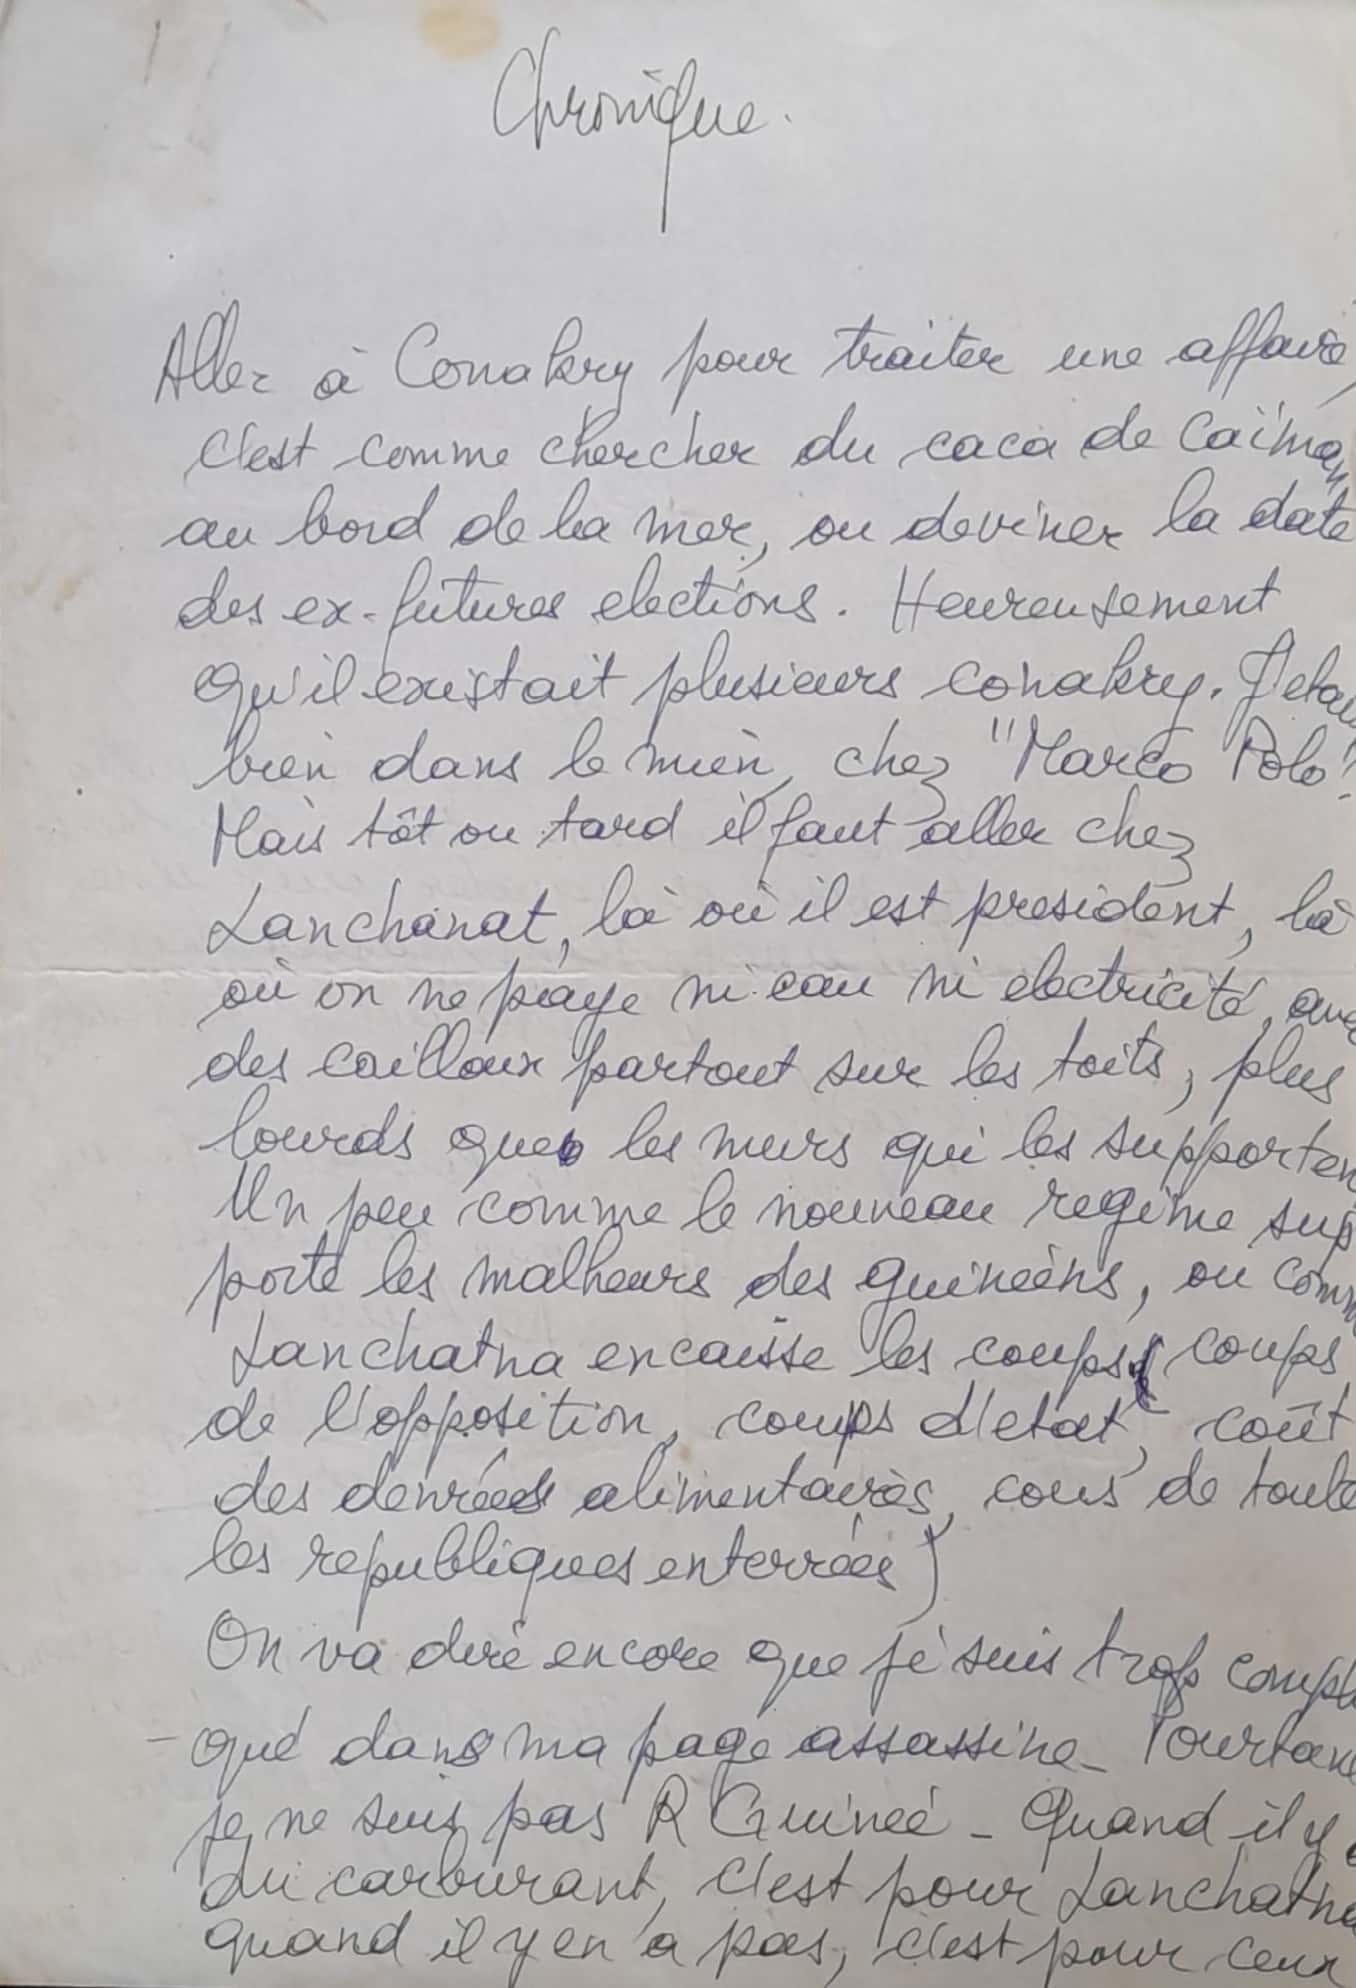 Chronique.
Aller à Conakry pour traiter une affaire,
c'est comme chercher du caca de Caïman
au bord de la mer, ou deviner la date
des ex-futures elections. Heureusement
qu'il existait plusieurs conakry. J'etais
bien dans le mien, chez "Marco Polo".
Mais tôt ou tard il faut aller chez
Lanchanat, là où il est president, là
où on ne paye ni eau ni electricité, avec
des cailloux partout sur les toits, plus
lourds que les murs qui les supporten
Un peu comme le nouveau regime sup
porte les malheurs des guineens, ou comm
Lanchatna encaisse les coups ( coups
de l'opposition, coups d'etat, coût
des denrées alimentaires, cous de toute
les republiques enterrées)
On va dire encore que je suis trop compli
qué dans ma page assassine - Pourtant
je ne suis pas R Guineé - Quand il y a
du carburant, c'est pour Lanchatna
quand il y en a pas, c'est pour ceux